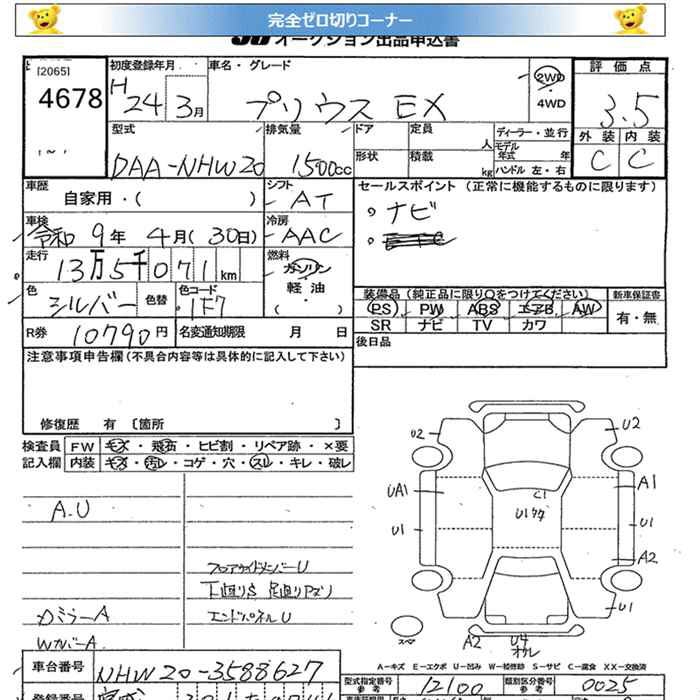 完全ゼロ切りコーナー
オークション出品申込書
[2065]
4678
初度登録年月
H 24 3月
車名・グレード
プリウス EX
2WD
・4WD
評価点
3.5
外装 内装
C C
型式
DAA-NHW20
排気量
1500cc
ドア
形状
定員
人
積載
kg
ディーラー・並行
モデル年式 年
ハンドル 左・右
車歴
自家用・( )
シフト
AT
セールスポイント (正常に機能するものに限ります)
ナビ
車検
令和 9年 4月(30日)
冷房
AAC
走行
13万5千071km
燃料
ガソリン
軽油
( )
色
シルバー
色替
色コード
1F7
装備品(純正品に限り○をつけてください)
新車保証書
PS PW ABS エアB AW
SR ナビ TV カワ
有・無
R券
10790円
名変通知期限 月 日
後日品
注意事項申告欄(不具合内容等は具体的に記入して下さい)
修復歴 有 [箇所 ]
検査員
記入欄
FW キズ・飛石・ヒビ割・リペア跡・×要
内装 キズ・汚レ・コゲ・穴・スレ・キレ・破レ
A.U
フロアサイドメンバーU
下廻りS 足廻りアズリ
カミラーA
エンドパネルU
WカバーA
U2
U2
UA1
U1
C1
U1
A1
U1
A2
U1
スペア
A2
U4
A-キズ E-エクボ U-凹み W-補修跡 S-サビ C-腐食 XX-交換済
車台番号
NHW20-3588627
型式指定番号
参考
12100
類別区分番号
参考
0025
登録番号